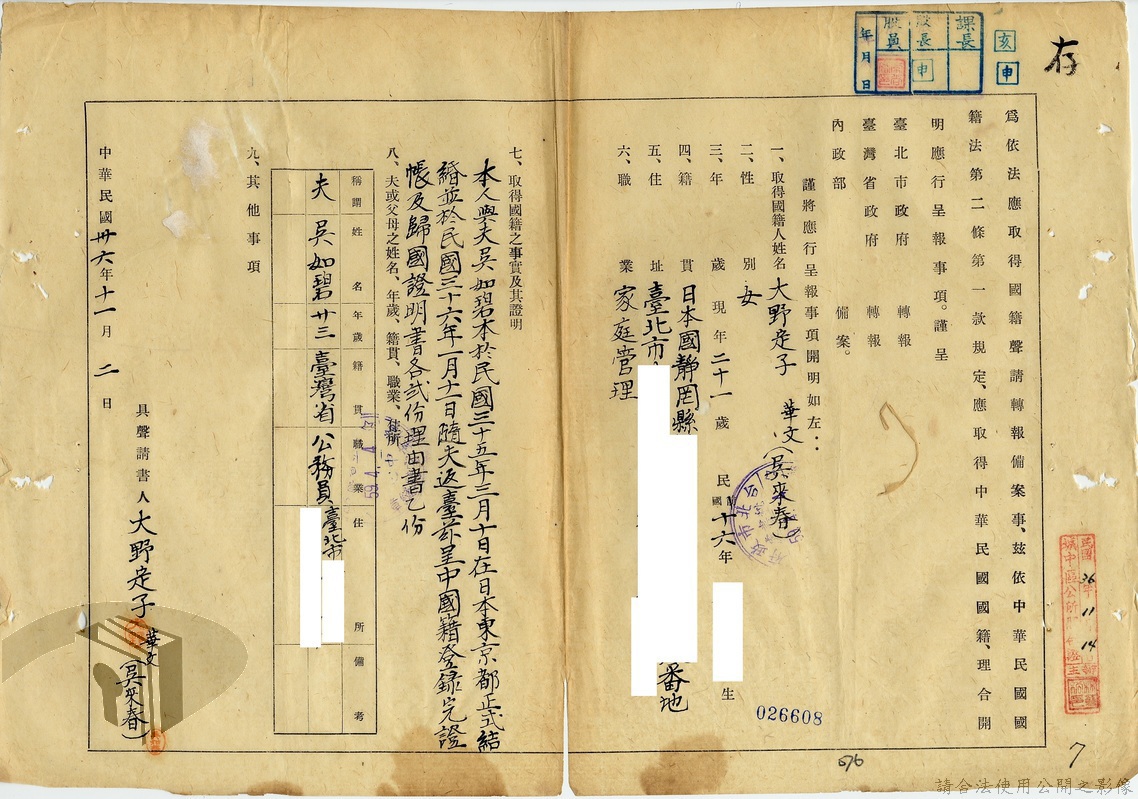 存
亥
申
課長
股長
申
股員
年月日
為依法應取得國籍聲請轉報備案事、茲依中華民國國
籍法第二條第一款規定、應取得中華民國國籍、理合開
明應行呈報事項。謹呈
臺北市政府 轉報
臺灣省政府 轉報
內政部 備案。
謹將應行呈報事項開明如左：
一、取得國籍人姓名 大野定子 華文（吳來春）
二、性別 女
三、年歲 現年二十一歲 民國十六年 生
四、籍貫 日本國靜岡縣 番地
五、住址 臺北市
六、職業 家庭管理
七、取得國籍之事實及其證明
本人與夫吳如碧本於民國三十五年三月十日在日本東京都正式結
婚並於民國三十六年一月十一日隨夫返臺茲呈中國籍登錄完證
帳及歸國證明書各貳份理由書乙份
八、夫或父母之姓名、年歲、籍貫、職業、住所
稱謂 姓名 年歲 籍貫 職業 住所 備考
夫 吳如碧 廿三 臺灣省 公務員 臺北市
九、其他事項
中華民國卅六年十一月二日
具聲請書人 大野定子 華文（吳來春）
民國36年11 14
026608
576
7
請合法使用公開之影像